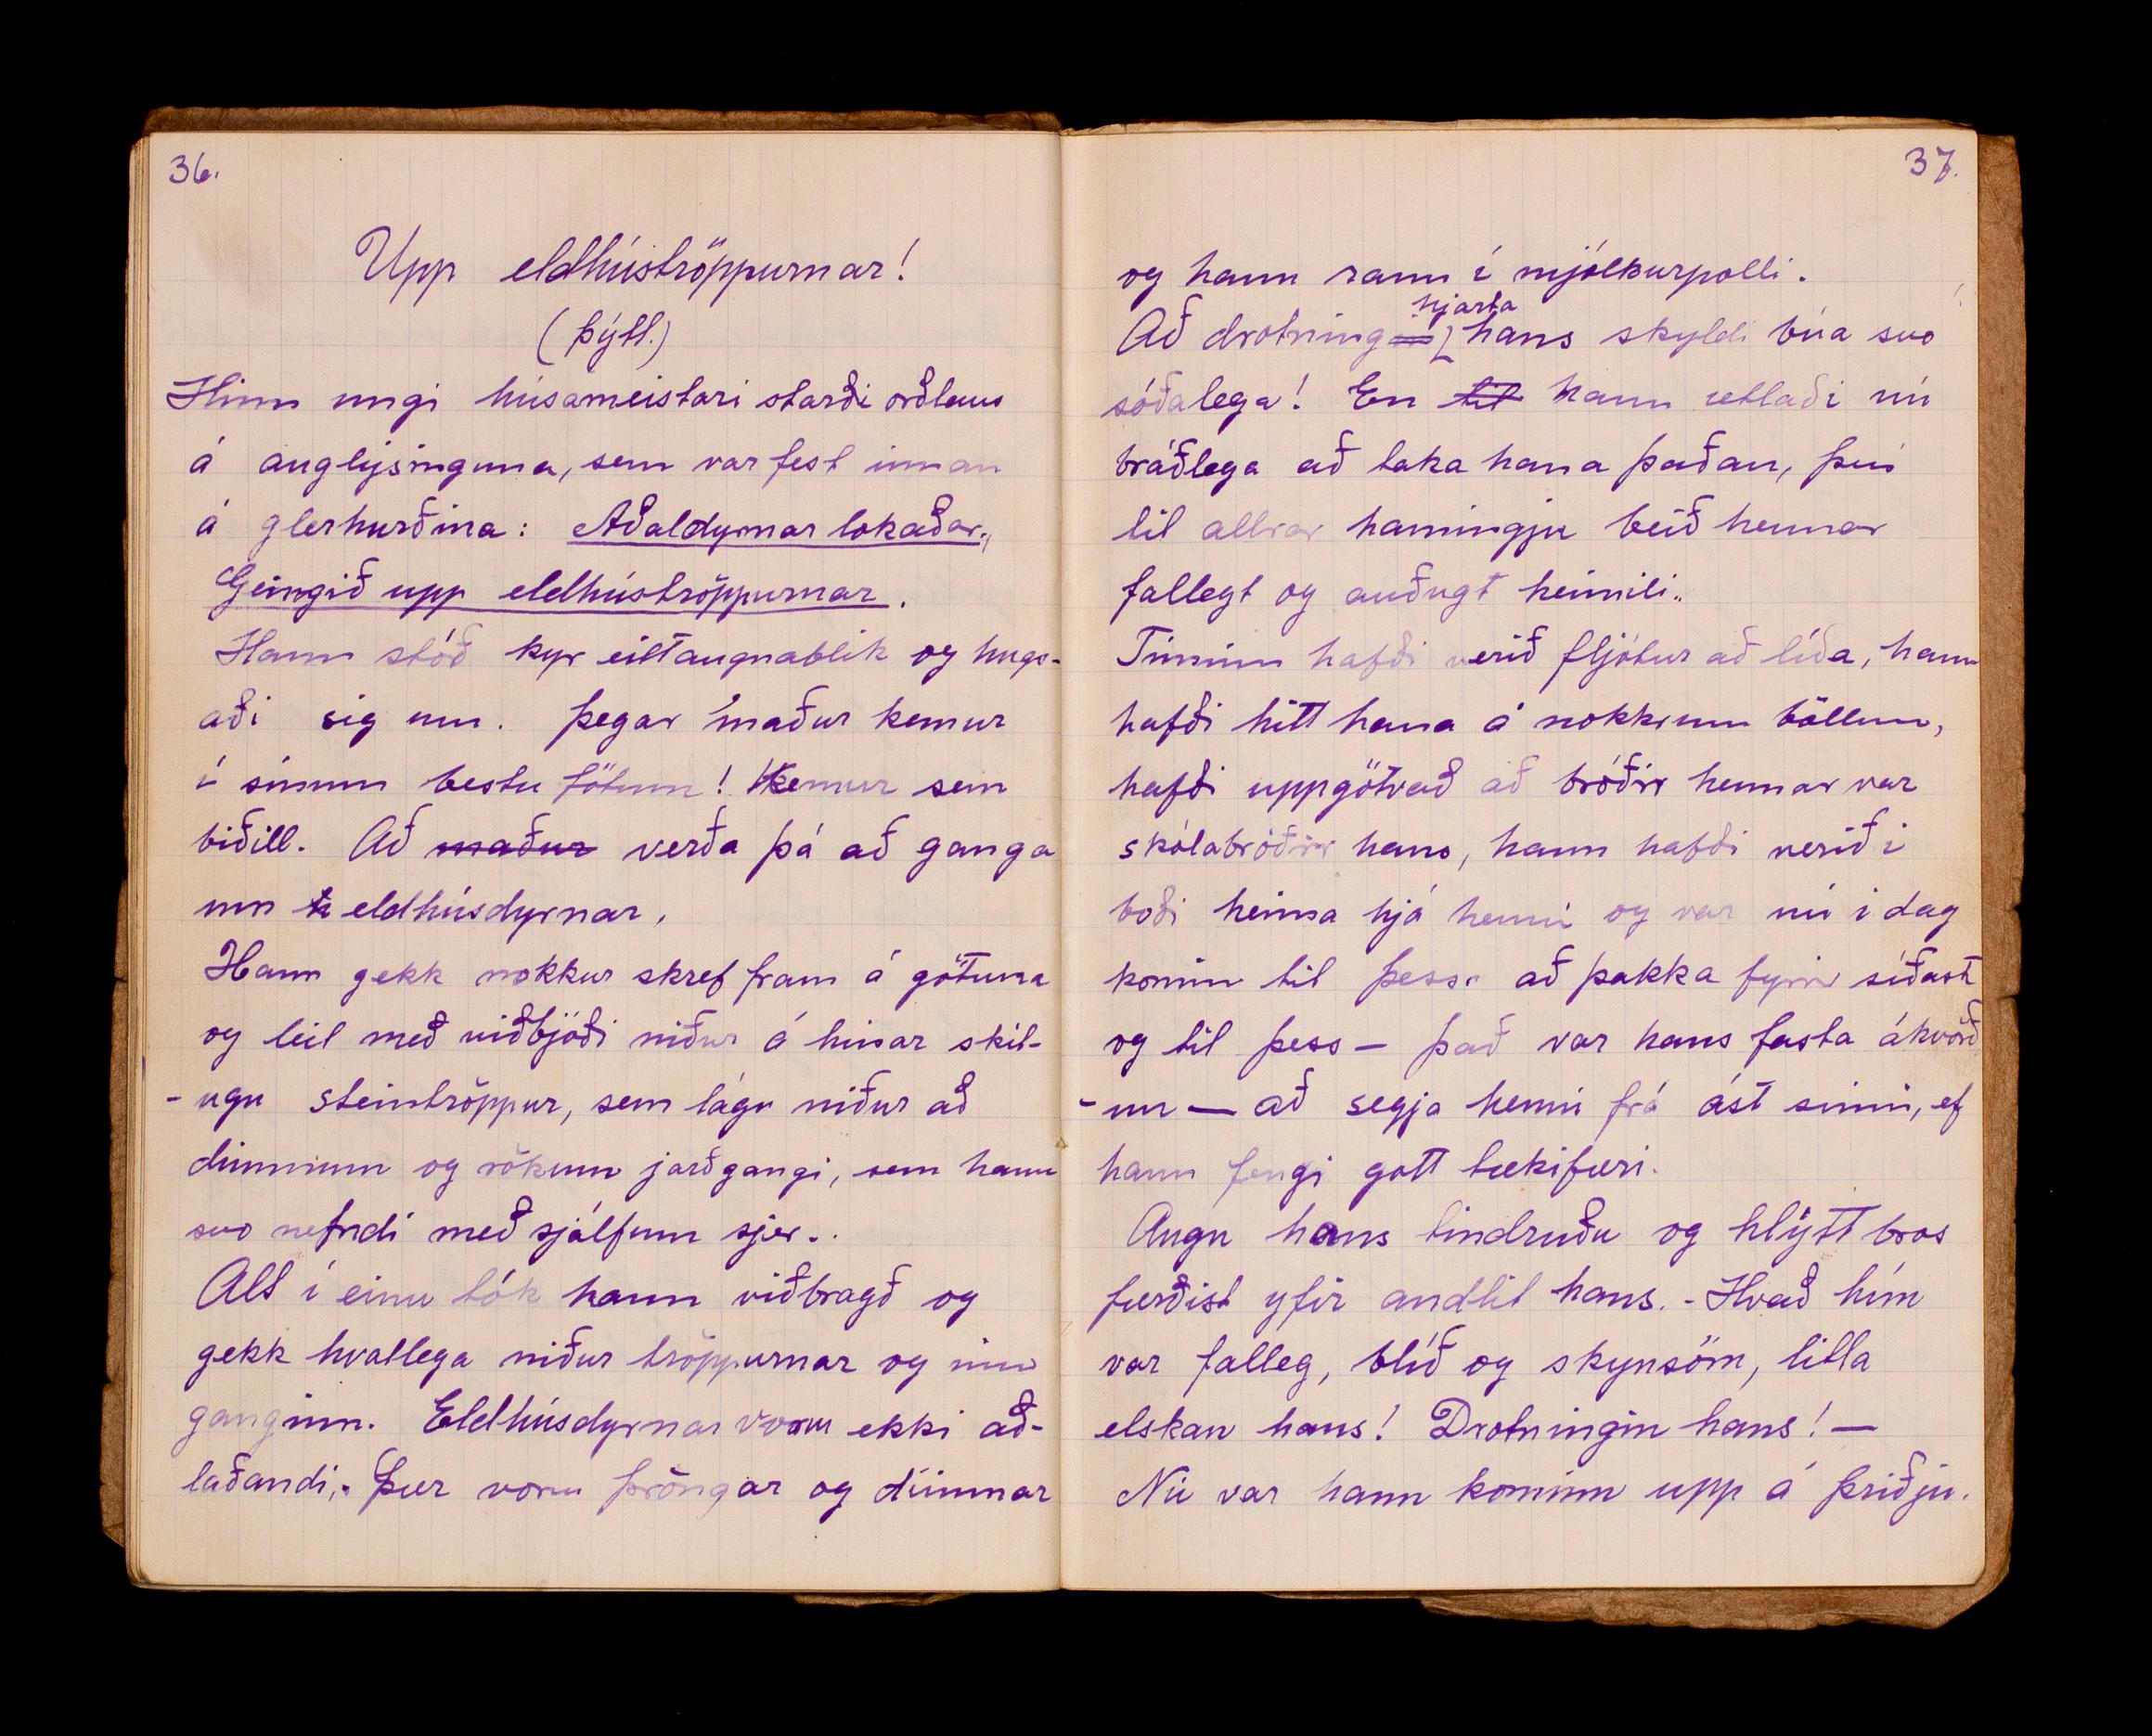 36.
Upp eldhúströppurnar!
(Þýtt.)
Hinn ungi húsameistari starði orðlaus
á auglýsinguna, sem var fest innan
á glerhurðina: Aðaldyrnar lokaðar.,
Geingið upp eldhúströppurnar.
Hann stóð kyr eitt augnablik og hugs-
aði sig um. Þegar maður kemur
í sínum bestu fötum! Kemur sem
biðill. Að maður verða þá að ganga
um eldhúsdyrnar,
Hann gekk nokkur skref fram á götuna
og leit með viðbjóði niður á hinar skít-
-ugu steintröppur, sem lágu niður að
dimmum og rökum jarðgangi, sem hann
svo nefndi með sjálfum sjer..
Alt í einu tók hann viðbragð og
gekk hvatlega niður tröppurnar og inn
ganginn. Eldhúsdyrnar voru ekki að-
laðandi,. Þær voru þröngar og dimmar
37.
og hann rann í mjólkurpolli.
hjarta
Að drotning hans skyldi búa svo
sóðalega! En til hann ætlaði nú
bráðlega að taka hana þaðan, því
til allrar hamingju beið hennar
fallegt og auðugt heimili..
Tíminn hafði verið fljótur að líða, hann
hafði hitt hana á nokkrum böllum,
hafði uppgötvað að bróðir hennar var
skólabróðir hans, hann hafði verið í
boði heima hjá henni og var nú í dag
komin til þess að þakka fyrir síðast
og til þess - það var hans fasta ákvörð
-un — að segja henni frá ást sinni, ef
hann fengi gott tækifæri.
Augu hans tindruðu og hlýtt bros
færðist yfir andlit hans. - Hvað hún
var falleg, blíð og skynsöm, litla
elskan hans! Drotningin hans! —
Nú var hann kominn upp á þriðju.